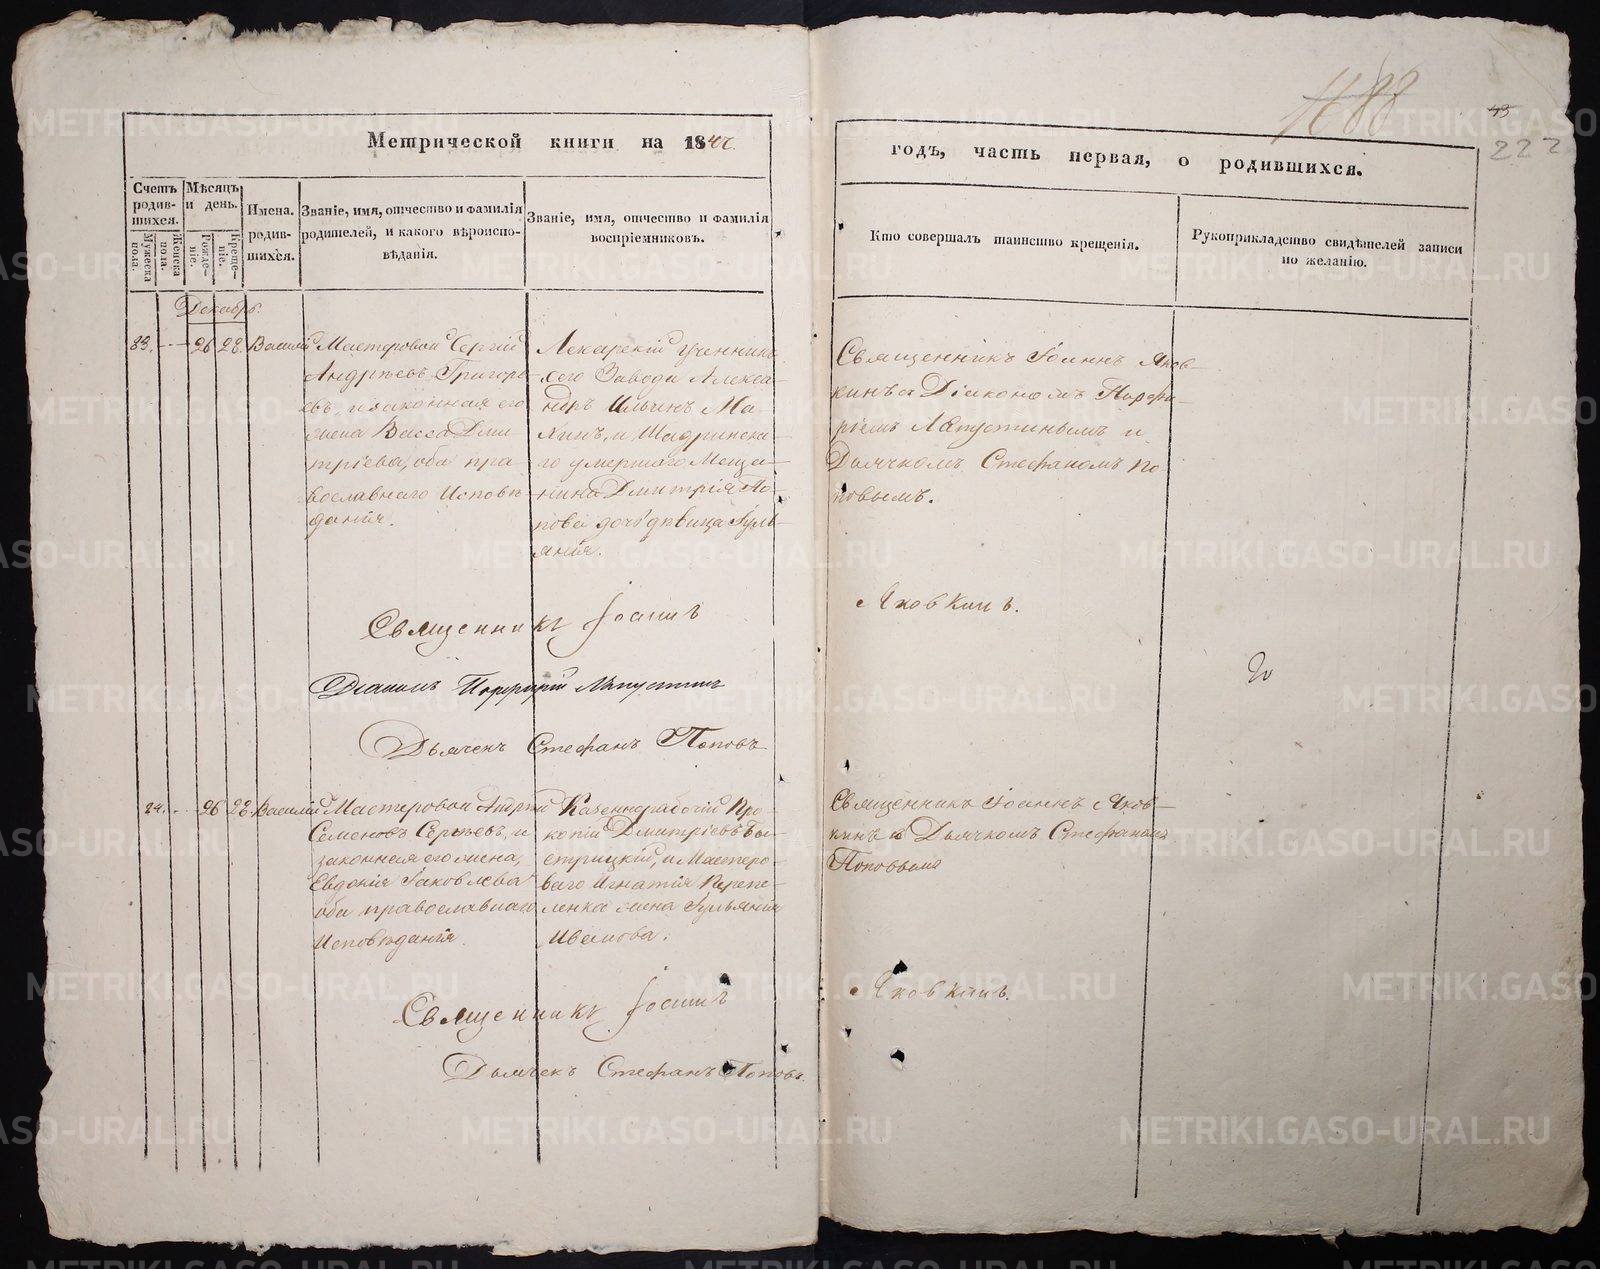 Метрической книги на 184
годъ, часть первая, о родившихся.
43
222
Счетъ родив-шихся.
Мужеска пола.
Женска пола.
Мѣсяцъ и день.
Рожде-нiе.
Креще-нiе.
Имена. родив-шихся.
Званiе, имя, отчество и фамилiя
родителей, и какого вѣроиспо-
вѣданiя.
Званiе, имя, отчество и фамилiя
воспрiемниковъ.
Кто совершалъ таинство крещенiя.
Рукоприкладство свидѣтелей записи
по желанiю.
Декабрь.
26 28. Василiй
Мастеровой Сергiй
Андрѣевъ Григорь-
евъ, и законная его
жена Васса Дми-
трiева, оба пра-
вославнаго Исповѣ-
данiя.
Лекарскiй ученикъ
сего Завода Алекса-
ндръ Ильинъ
и Шадринска-
го умершаго Меща-
нина Дмитрiя По-
пова дочь дѣвица Iулi-
янiя.
Священникъ Iоаннъ Яков-
кинъ съ Дiакономъ Порфи-
рiемъ Лапустинымъ и
Дьячкомъ Стефаномъ По
повымъ.
Священникъ Iоаннъ
Яковкинъ.
Дiаконъ Порфирiй Лапустинъ
Дьячекъ Стефанъ Поповъ
24. 26 28 Василiй
Мастеровой Андрей
Семеновъ Сергѣевъ, и
законная его жена,
Евдокiя Iаковлева
оба православнаго
Исповѣданiя.
Казеннорабочiй Про-
копiй Дмитрiевъ Бы-
стрицкiй, и Мастеро-
ваго Игнатiя Перепе-
ленка жена Iульянiя
Иванова.
Священникъ Iоаннъ Яков-
кинъ съ Дьячкомъ Стефаномъ
Поповымъ
Священникъ Iоаннъ
Яковкинъ.
Дьячекъ Стефанъ Поповъ.
METRIKI.GASO-URAL.RU